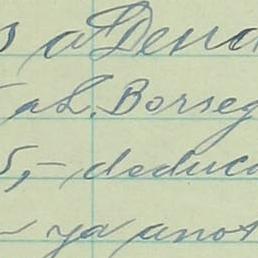 a Den
a L. Borseg
5,- deduc
ya anot